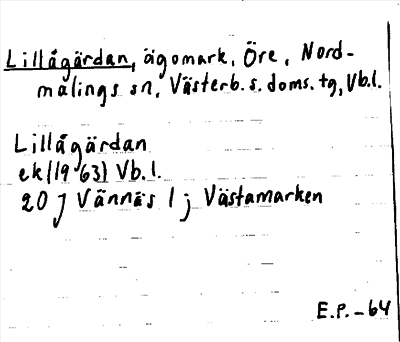 Lillågärdan, ägomark, Öre, Nord-
malings sn, Västerb. s. doms. tg, Vb.l.
Lillågärdan
ek (1963) Vb.l.
20 J Vännäs 1 j Västamarken
E.P. - 64